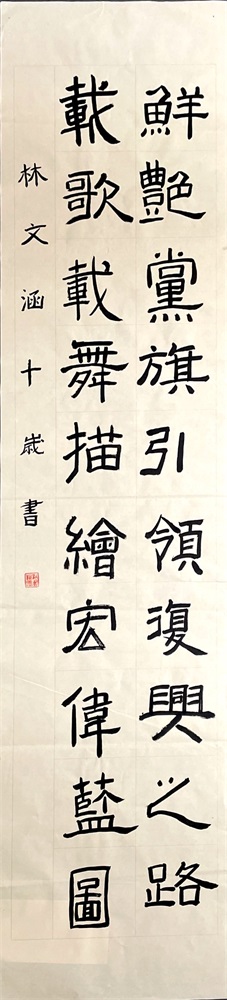 鮮艷黨旗引領復興之路
載歌載舞描繪宏偉藍圖
林文涵十歲書